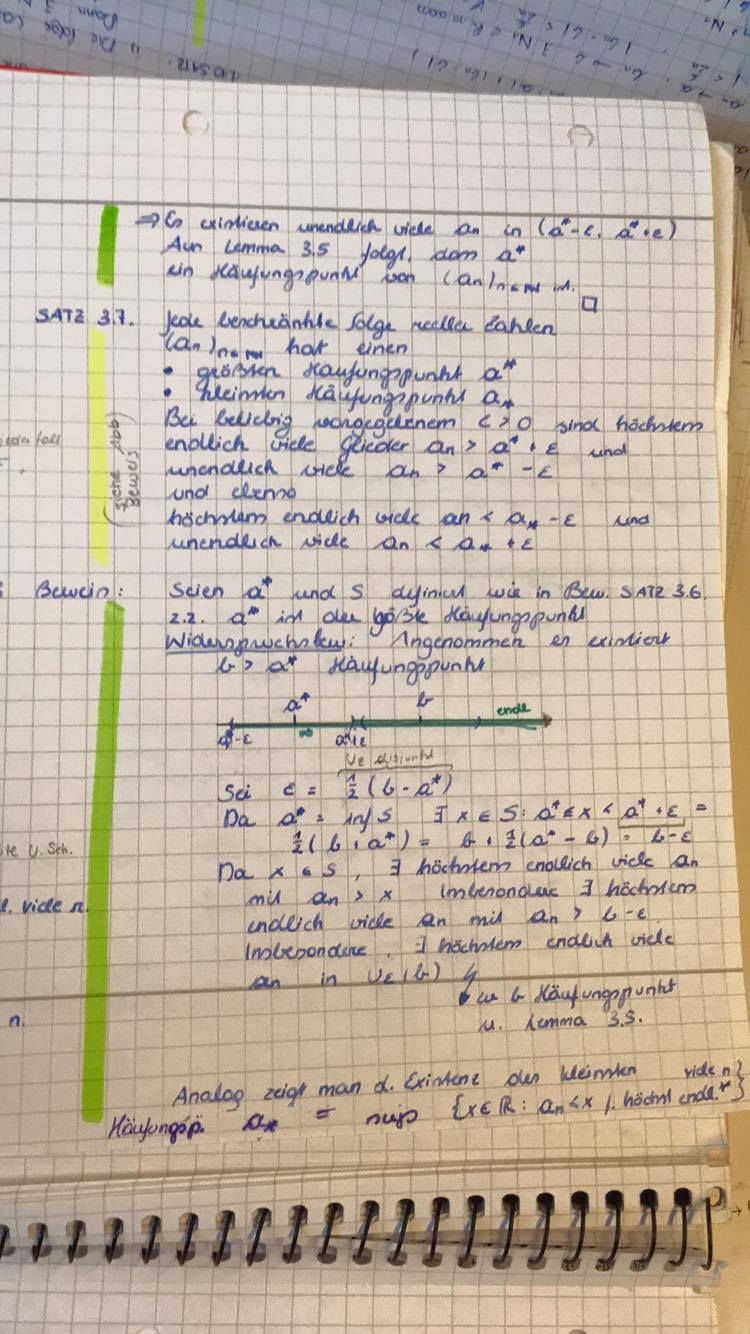 1.10 SATZ:
⇒ Es existieren unendlich viele an in (a*-ε, a*+ε)
Aus Lemma 3.5 folgt, dass a*
ein Häufungspunkt von (an)n∈ℕ ist. □
SATZ 3.7. Jede beschränkte Folge reeller Zahlen
(an)n∈ℕ hat einen
• größten Häufungspunkt a*
• kleinsten Häufungspunkt a⁎
Bei beliebig vorgegebenem ε > 0 sind höchstens
endlich viele Glieder an > a* + ε und
unendlich viele an > a* - ε
und ebenso
höchstens endlich viele an < a⁎ - ε und
unendlich viele an < a⁎ + ε
(siehe Abb
Beweis)
Beweis: Seien a* und S definiert wie in Bew. SATZ 3.6.
z.z. a* ist der größte Häufungspunkt
Widerspruchsbew: Angenommen es existiert
b > a* Häufungspunkt
a* b endl
a*-ε ∞ a*+ε
Uε disjunkt
Sei ε = ½(b - a*)
Da a* = inf S ∃ x ∈ S: a* ≤ x < a* + ε =
½(b + a*) = b + ½(a* - b) = b - ε
Da x ∈ S, ∃ höchstens endlich viele an
mit an > x Insbesondere ∃ höchstens
endlich viele an mit an > b - ε.
Insbesondere, ∃ höchstens endlich viele
an in Uε(b) ↯
w b Häufungspunkt
u. Lemma 3.5.
U. Sch.
viele n.
n.
Analog zeigt man d. Existenz des kleinsten
Häufungsp. a⁎ = sup {x∈ℝ: an < x f. höchst endl. viele n}